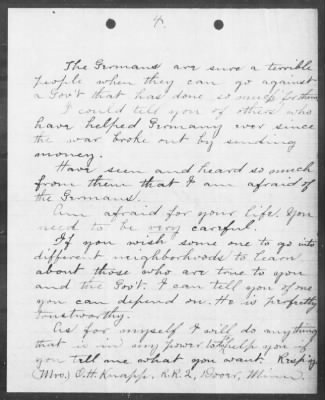 4.
The Germans are sure a terrible
people when they can go against
a Gov't that has done so much for them
I could tell you of others who
have helped Germany ever since
the war broke out by sending
money.
Have seen and heard so much
from them that I am afraid of
the Germans.
Am afraid for your life. You
need to be very careful
If you wish some one to go into
different neighborhoods to learn
about those who are true to you
and the Gov't. I can tell you of one
you can depend on. He is perfectly
trustworthy.
As for myself I will do anything
that is in my power to help you if
you tell me what you want. Resp'y
(Mrs.) J. H. Knapp, R.R. 2, Minn